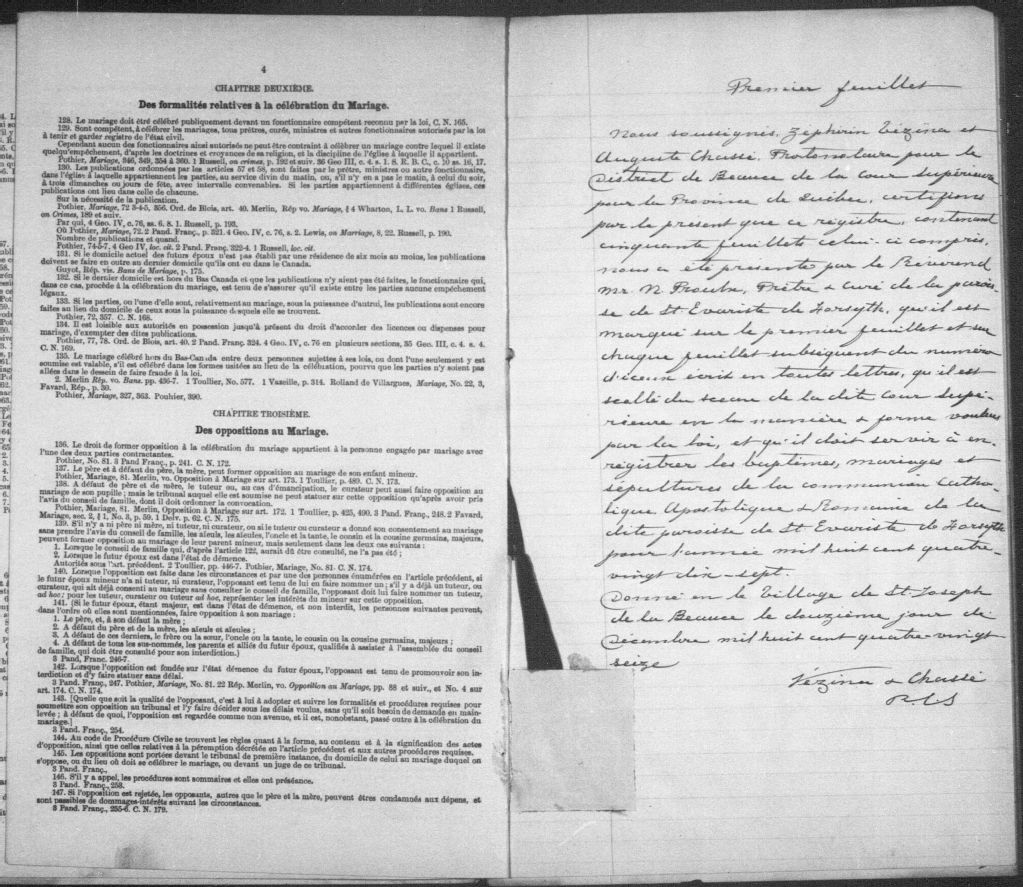 4
CHAPITRE DEUXIÈME.
Des formalités relatives à la célébration du Mariage.
128. Le mariage doit être célébré publiquement devant un fonctionnaire compétent reconnu par la loi, C, N. 165.
129. Sont compétent, à célébrer les mariages, tous prêtres, curés, ministres et autres fonctionnaires autorisés par la loi
à tenir et garder registre de l'état civil.
Cependant aucun des fonctionnaires ainsi autorisés ne peut être contraint à célébrer un mariage contre lequel il existe
quelqu'empêchement, d'après les doctrines et croyances de sa religion, et la discipline de l'église à laquelle il appartient.
Pothier, Mariage, 346, 349, 354 & 360. 1 Russell, on crimes, p. 192 et suiv. 36 Geo III, c. 4. s. 1. S. R. B. C., c. 10 ss. 16, 17.
130. Les publications ordonnées par les articles 57 et 58, sont faites par le prêtre, ministres ou autre fonctionnaire,
dans l'église à laquelle appartiennent les parties, au service divin du matin, ou, s'il n'y en a pas le matin, à celui du soir,
à trois dimanches ou jours de fête, avec intervalle convenables. Si les parties appartiennent à différentes églises, ces
publications ont lieu dans celle de chacune.
Sur la nécessité de la publication.
Pothier, Mariage, 72 3-4-5, 356. Ord. de Blois, art. 40. Merlin, Rép vo. Mariage, § 4 Wharton, L. L. vo. Bans 1 Russell,
on Crimes, 189 et suiv.
Par qui, 4 Geo. IV, c.76, ss. 6. 8. 1. Russell, p. 193.
Où Pothier, Mariage, 72. 2 Pand. Franç., p. 321. 4 Geo. IV, c. 76, s. 2. Lewis, on Marriage, 8, 22. Russell, p. 190.
Nombre de publications et quand.
Pothier, 74-5-7. 4 Geo IV, loc. cit. 2 Pand. Franç. 322-4. 1 Russell, loc. cit.
131. Si le domicile actuel des futurs époux n'est pas établi par une résidence de six mois au moins, les publications
doivent se faire en outre au dernier domicile qu'ils ont eu dans le Canada.
Guyot, Rép. vis. Bans de Mariage, p. 175.
132. Si le dernier domicile est hors du Bas Canada et que les publications n'y aient pas été faites, le fonctionnaire qui,
dans ce cas, procède à la célébration du mariage, est tenu de s'assurer qu'il existe entre les parties aucun empêchement
légaux.
133. Si les parties, ou l'une d'elle sont, relativement au mariage, sous la puissance d'autrui, les publications sont encore
faites au lieu du domicile de ceux sous la puissance desquels elle se trouvent.
Pothier, 72, 357. C. N. 168.
134. Il est loisible aux autorités en possession jusqu'à présent du droit d'accorder les licences ou dispenses pour
mariage, d'exempter des dites publications.
Pothier, 77, 78. Ord. de Blois, art. 40. 2 Pand. Franç. 324. 4 Geo. IV, c. 76 en plusieurs sections, 35 Geo. III, c. 4. s. 4.
C. N. 169.
135. Le mariage célébré hors du Bas-Canada entre deux personnes sujettes à ses lois, ou dont l'une seulement y est
soumise est valable, s'il est célébré dans les formes usitées au lieu de la célébration, pourvu que les parties n'y soient pas
allées dans le dessein de faire fraude à la loi.
2. Merlin Rép. vo. Bans. pp. 436-7. 1 Toullier, No. 577. 1 Vazeille, p. 314. Rolland de Villargues, Mariage, No. 22, 3,
Favard, Rép., p. 30.
Pothier, Mariage, 327, 363. Pouhier, 390.
CHAPITRE TROISIÈME.
Des oppositions au Mariage.
136. Le droit de former opposition à la célébration du mariage appartient à la personne engagée par mariage avec
l'une des deux parties contractantes.
Pothier, No. 81. 3 Pand Franç., p. 241. C. N. 172.
137. Le père et à défaut du père, la mère, peut former opposition au mariage de son enfant mineur.
Pothier, Mariage, 81. Merlin, vo. Opposition à Mariage sur art. 173. 1 Toullier, p. 489. C. N. 173.
138. A défaut de père et de mère, le tuteur ou, au cas d'émancipation, le curateur peut aussi faire opposition au
mariage de son pupille ; mais le tribunal auquel elle est soumise ne peut statuer sur cette opposition qu'après avoir pris
l'avis du conseil de famille, dont il doit ordonner la convocation.
Pothier, Mariage, 81. Merlin, Opposition à Mariage sur art. 172. 1 Toullier, p. 425, 490. 3 Pand. Franç., 248. 2 Favard,
Mariage, sec. 2, § 1, No. 3, p. 59. 1 Delv. p. 62. C. N. 175.
139. S'il n'y a ni père ni mère, ni tuteur, ni curateur, ou si le tuteur ou curateur a donné son consentement au mariage
sans prendre l'avis du conseil de famille, les aïeuls, les aïeules, l'oncle et la tante, le cousin et la cousine germains, majeurs,
peuvent former opposition au mariage de leur parent mineur, mais seulement dans les deux cas suivants :
1. Lorsque le conseil de famille qui, d'après l'article 122, aurait dû être consulté, ne l'a pas été ;
2. Lorsque le futur époux est dans l'état de démence.
Autorités sous l'art. précédent. 2 Toullier, pp. 446-7. Pothier, Mariage, No. 81. C. N. 174.
140. Lorsque l'opposition est faite dans les circonstances et par une des personnes énumérées en l'article précédent, si
le futur époux mineur n'a ni tuteur, ni curateur, l'opposant est tenu de lui en faire nommer un ; s'il y a déjà un tuteur, ou
curateur, qui ait déjà consenti au mariage sans consulter le conseil de famille, l'opposant doit lui faire nommer un tuteur,
ad hoc: pour les tuteur, curateur ou tuteur ad hoc, représenter les intérêts du mineur sur cette opposition.
141. (Si le futur époux, étant majeur, est dans l'état de démence, et non interdit, les personnes suivantes peuvent,
dans l'ordre où elles sont mentionnées, faire opposition à son mariage :
1. Le père, et, à son défaut la mère ;
2. A défaut du père et de la mère, les aïeuls et aïeules ;
3. A défaut de ces derniers, le frère ou la sœur, l'oncle ou la tante, le cousin ou la cousine germains, majeurs ;
4. A défaut de tous les sus-nommés, les parents et alliés du futur époux, qualifiés à assister à l'assemblée du conseil
de famille, qui doit être consulté pour son interdiction.)
3 Pand, Franc. 246-7.
142. Lorsque l'opposition est fondée sur l'état démence du futur époux, l'opposant est tenu de promouvoir son in-
terdiction et d'y faire statuer sans délai.
3 Pand. Franç., 247. Pothier, Mariage, No. 81. 22 Rép. Merlin, vo. Opposition au Mariage, pp. 88 et suiv., et No. 4 sur
art. 174. C. N. 174.
143. [Quelle que soit la qualité de l'opposant, c'est à lui à adopter et suivre les formalités et procédures requises pour
soumettre son opposition au tribunal et l'y faire décider sous les délais voulus, sans qu'il soit besoin de demande en main-
levée ; à défaut de quoi, l'opposition est regardée comme non avenue, et il est, nonobstant, passé outre à la célébration du
mariage.]
3 Pand. Franç., 254.
144. Au code de Procédure Civile se trouvent les règles quant à la forme, au contenu et à la signification des actes
d'opposition, ainsi que celles relatives à la péremption décrétée en l'article précédent et aux autres procédures requises.
145. Les oppositions sont portées devant le tribunal de première instance, du domicile de celui au mariage duquel on
s'oppose, ou du lieu où doit se célébrer le mariage, ou devant un juge de ce tribunal.
3 Pand. Franç.,
146. S'il y a appel, les procédures sont sommaires et elles ont préséance.
3 Pand. Franç., 258.
147. Si l'opposition est rejetée, les opposants, autres que le père et la mère, peuvent êtres condamnés aux dépens, et
sont passibles de dommages-intérêts suivant les circonstances.
3 Pand. Franç., 255-6. C. N. 179.
Premier feuillet
Nous soussignés, Zéphirin Vézina et
Auguste Chassé, Protonotaire pour le
District de Beauce de la Cour Supérieure
pour la Province de Québec, certifions
par le présent que ce registre, contenant
cinquante feuillets celui-ci compris,
nous a été présenté par le Révérend
Mr. N. Proulx, Prêtre & curé de la parois-
se de St Evariste de Forsyth, qu'il est
marqué sur le premier feuillet et sur
chaque feuillet subséquent du numéro
d'iceux écrit en toutes lettres, qu'il est
scellé du sceau de la dite Cour Supé-
rieure en la manière & forme voulues
par la loi, et qu'il doit servir à en-
registrer les baptêmes, mariages et
sépultures de la communion Catho-
lique Apostolique & Romaine de la
dite paroisse de St Evariste de Forsyth
pour l'année mil huit cent quatre-
vingt dix-sept.
Donné en le Village de St Joseph
de la Beauce le douzième jour de
Décembre mil huit cent quatre-vingt
seize
Vézina & Chassé
P.C.S